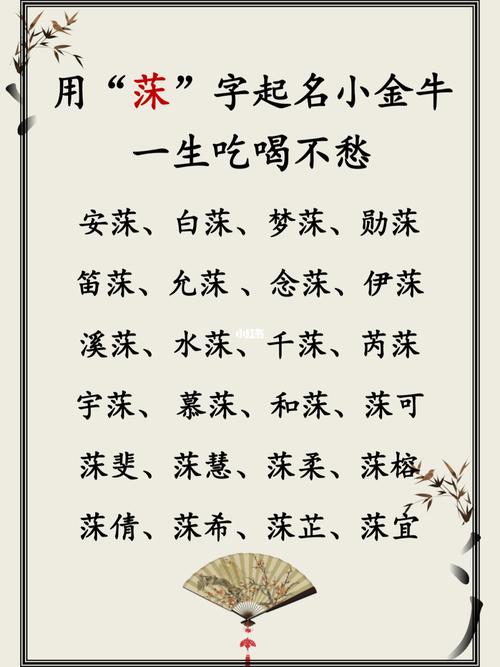 用“莯”字起名小金牛
一生吃喝不愁
安莯、白莯、梦莯、勋莯
笛莯、允莯、念莯、伊莯
溪莯、水莯、千莯、芮莯
小红书
宇莯、慕莯、和莯、莯可
莯斐、莯慧、莯柔、莯榕
莯倩、莯希、莯芷、莯宜